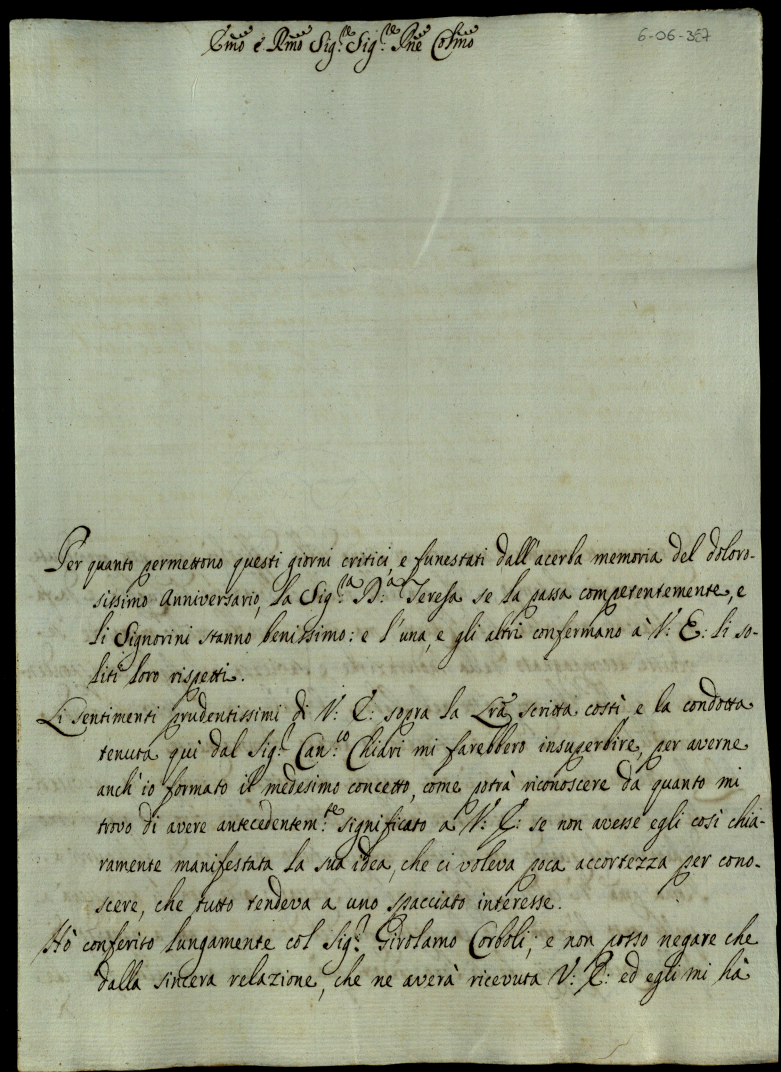 Emo e Rmo Sig.re Sig.re Pne Colmo
6-06-357
Per quanto permettono questi giorni critici, e funestati dall'acerba memoria del doloro-
sissimo Anniversario, la Sig.ra B.a Teresa se la passa competentemente, e
li Signorini stanno benissimo: e l'una, e gli altri confermano à V: E: li so-
liti loro rispetti.
Li sentimenti prudentissimi di V: E: sopra la Lra scritta costì e la condotta
tenuta quì dal Sig.r Can.co Chiari mi farebbero insuperbire, per averne
anch'io formato il medesimo concetto, come potrà riconoscere da quanto mi
trovo di avere antecedentem.te significato a V: E: se non avesse egli così chia-
ramente manifestata la sua idea, che ci voleva poca accortezza per cono-
scere, che tutto tendeva a uno spacciato interesse.
Hò conferito lungamente col Sig.r Girolamo Corboli; e non posso negare che
dalla sincera relazione, che ne averà ricevuta V: E: ed egli mi hà